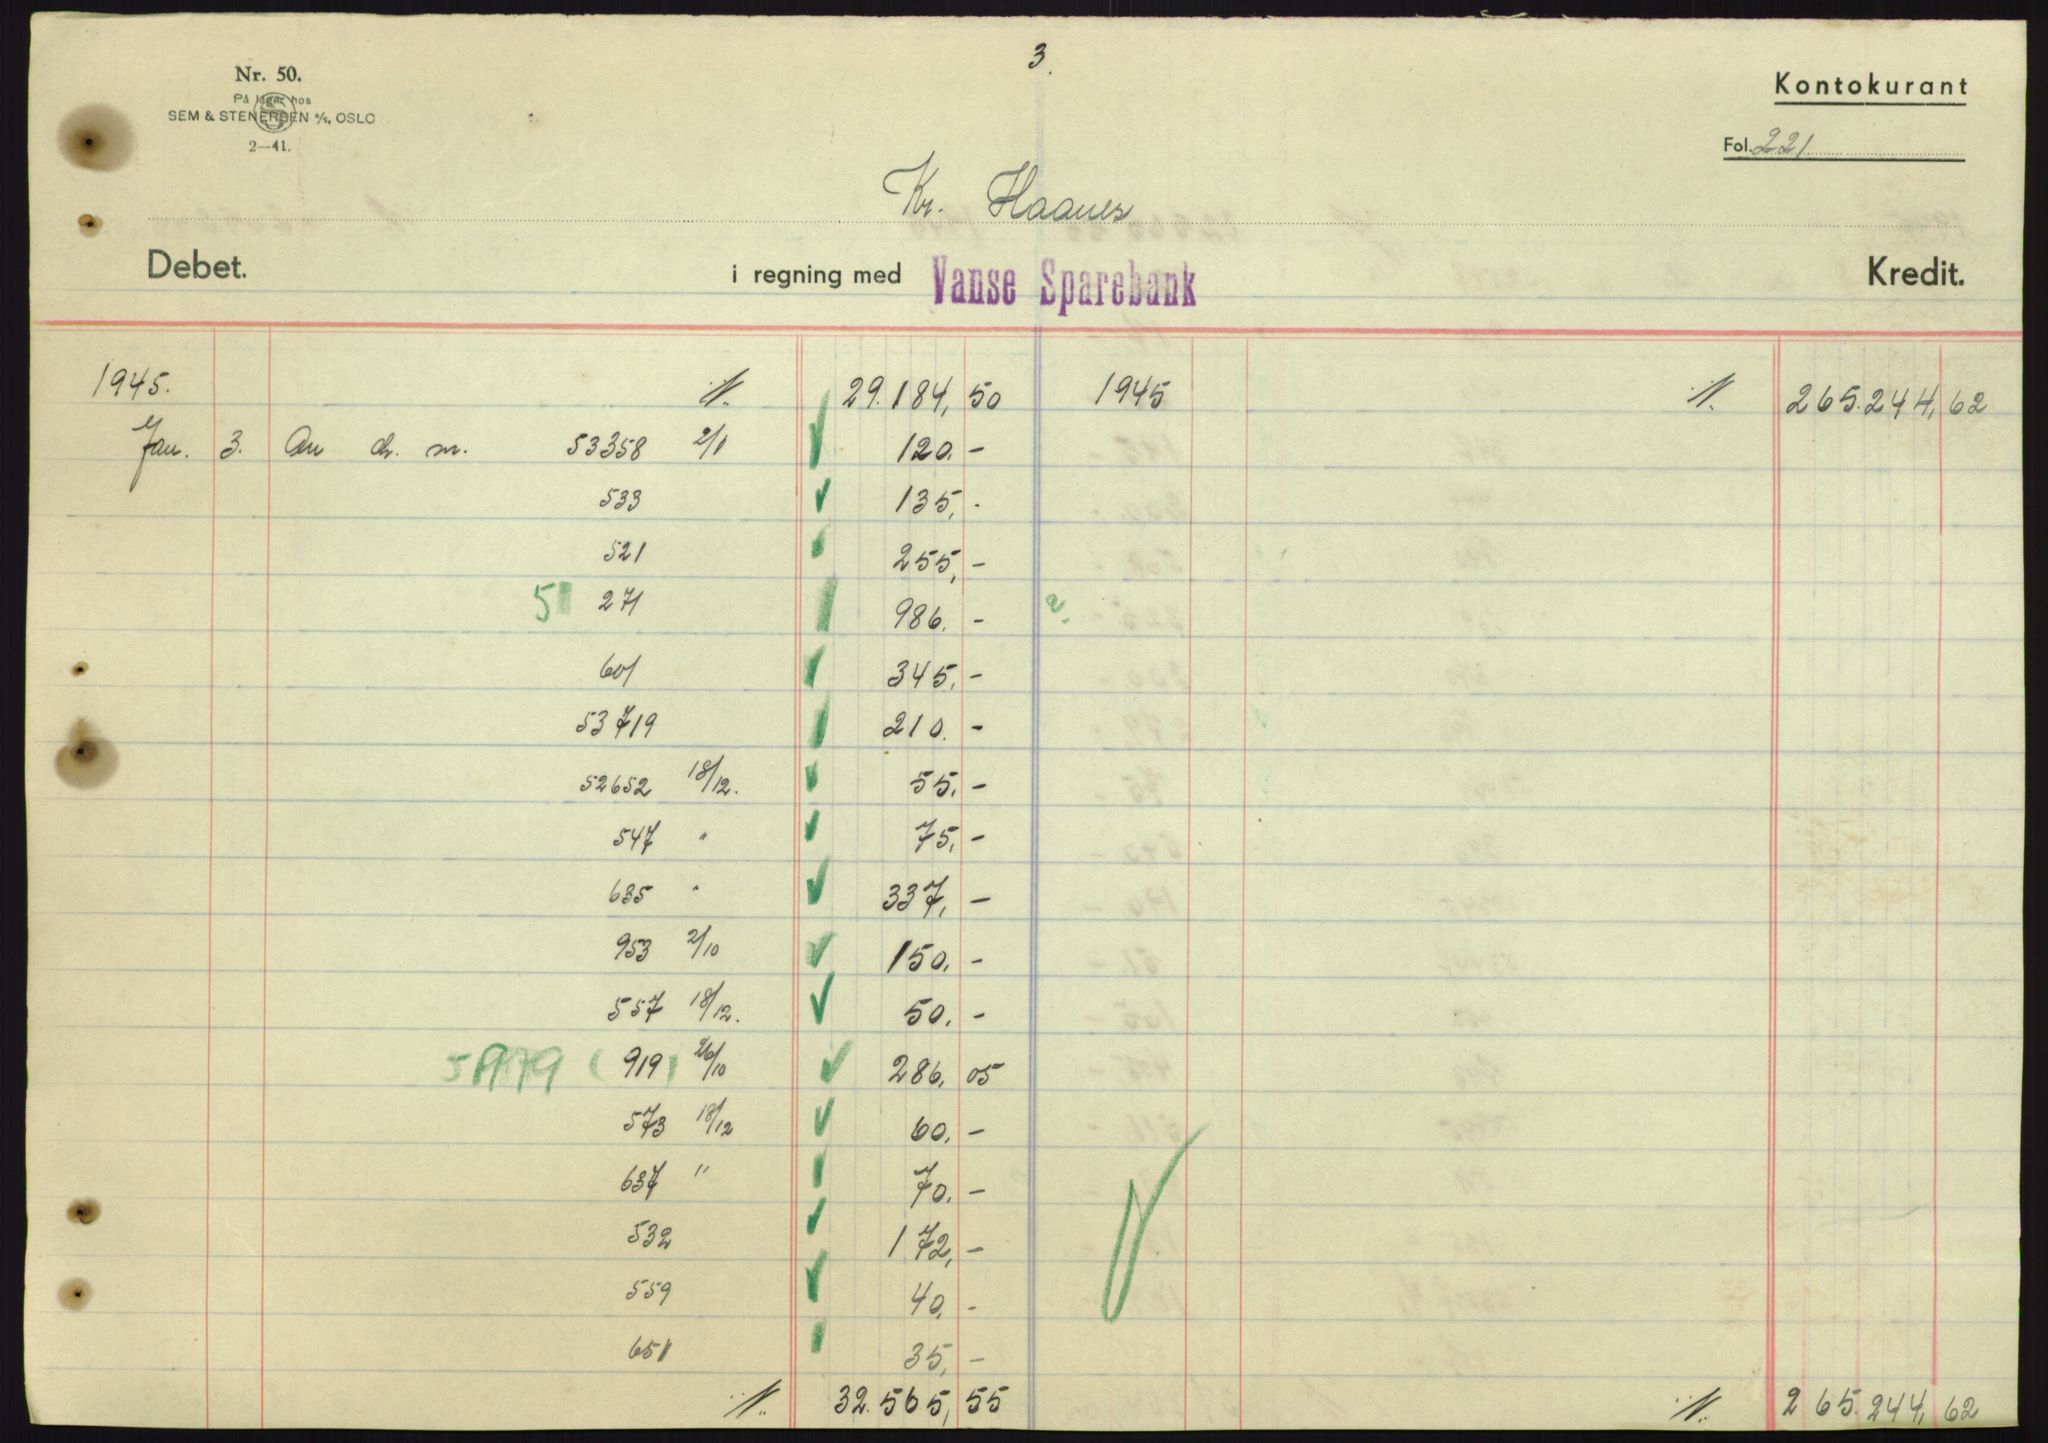 3.
Nr. 50.
På lager hos
SEM & STENERSEN A/S, OSLO
2—41.
Kontokurant
Fol. 221
Kr. Haanes
Debet. i regning med Vanse Sparebank Kredit.
1945. ·/·. 29.184, 50 1945 ·/·. 265.244, 62
Jan. 3. An ch. nr. 53358 2/1 120. -
533 135, -
521 255, -
51 271 986. - 2.
601 345, -
53719 210. -
52652 18/12. 55, -
547 " 75, -
635 " 337, -
953 2/10 150. -
557 18/12. 50. -
( 919 ) 26/10 286, 05
573 18/12 60. -
637 " 70. -
532 172, -
559 40, -
651 35, -
·/·. 32.565, 55 ·/·. 265.244, 62